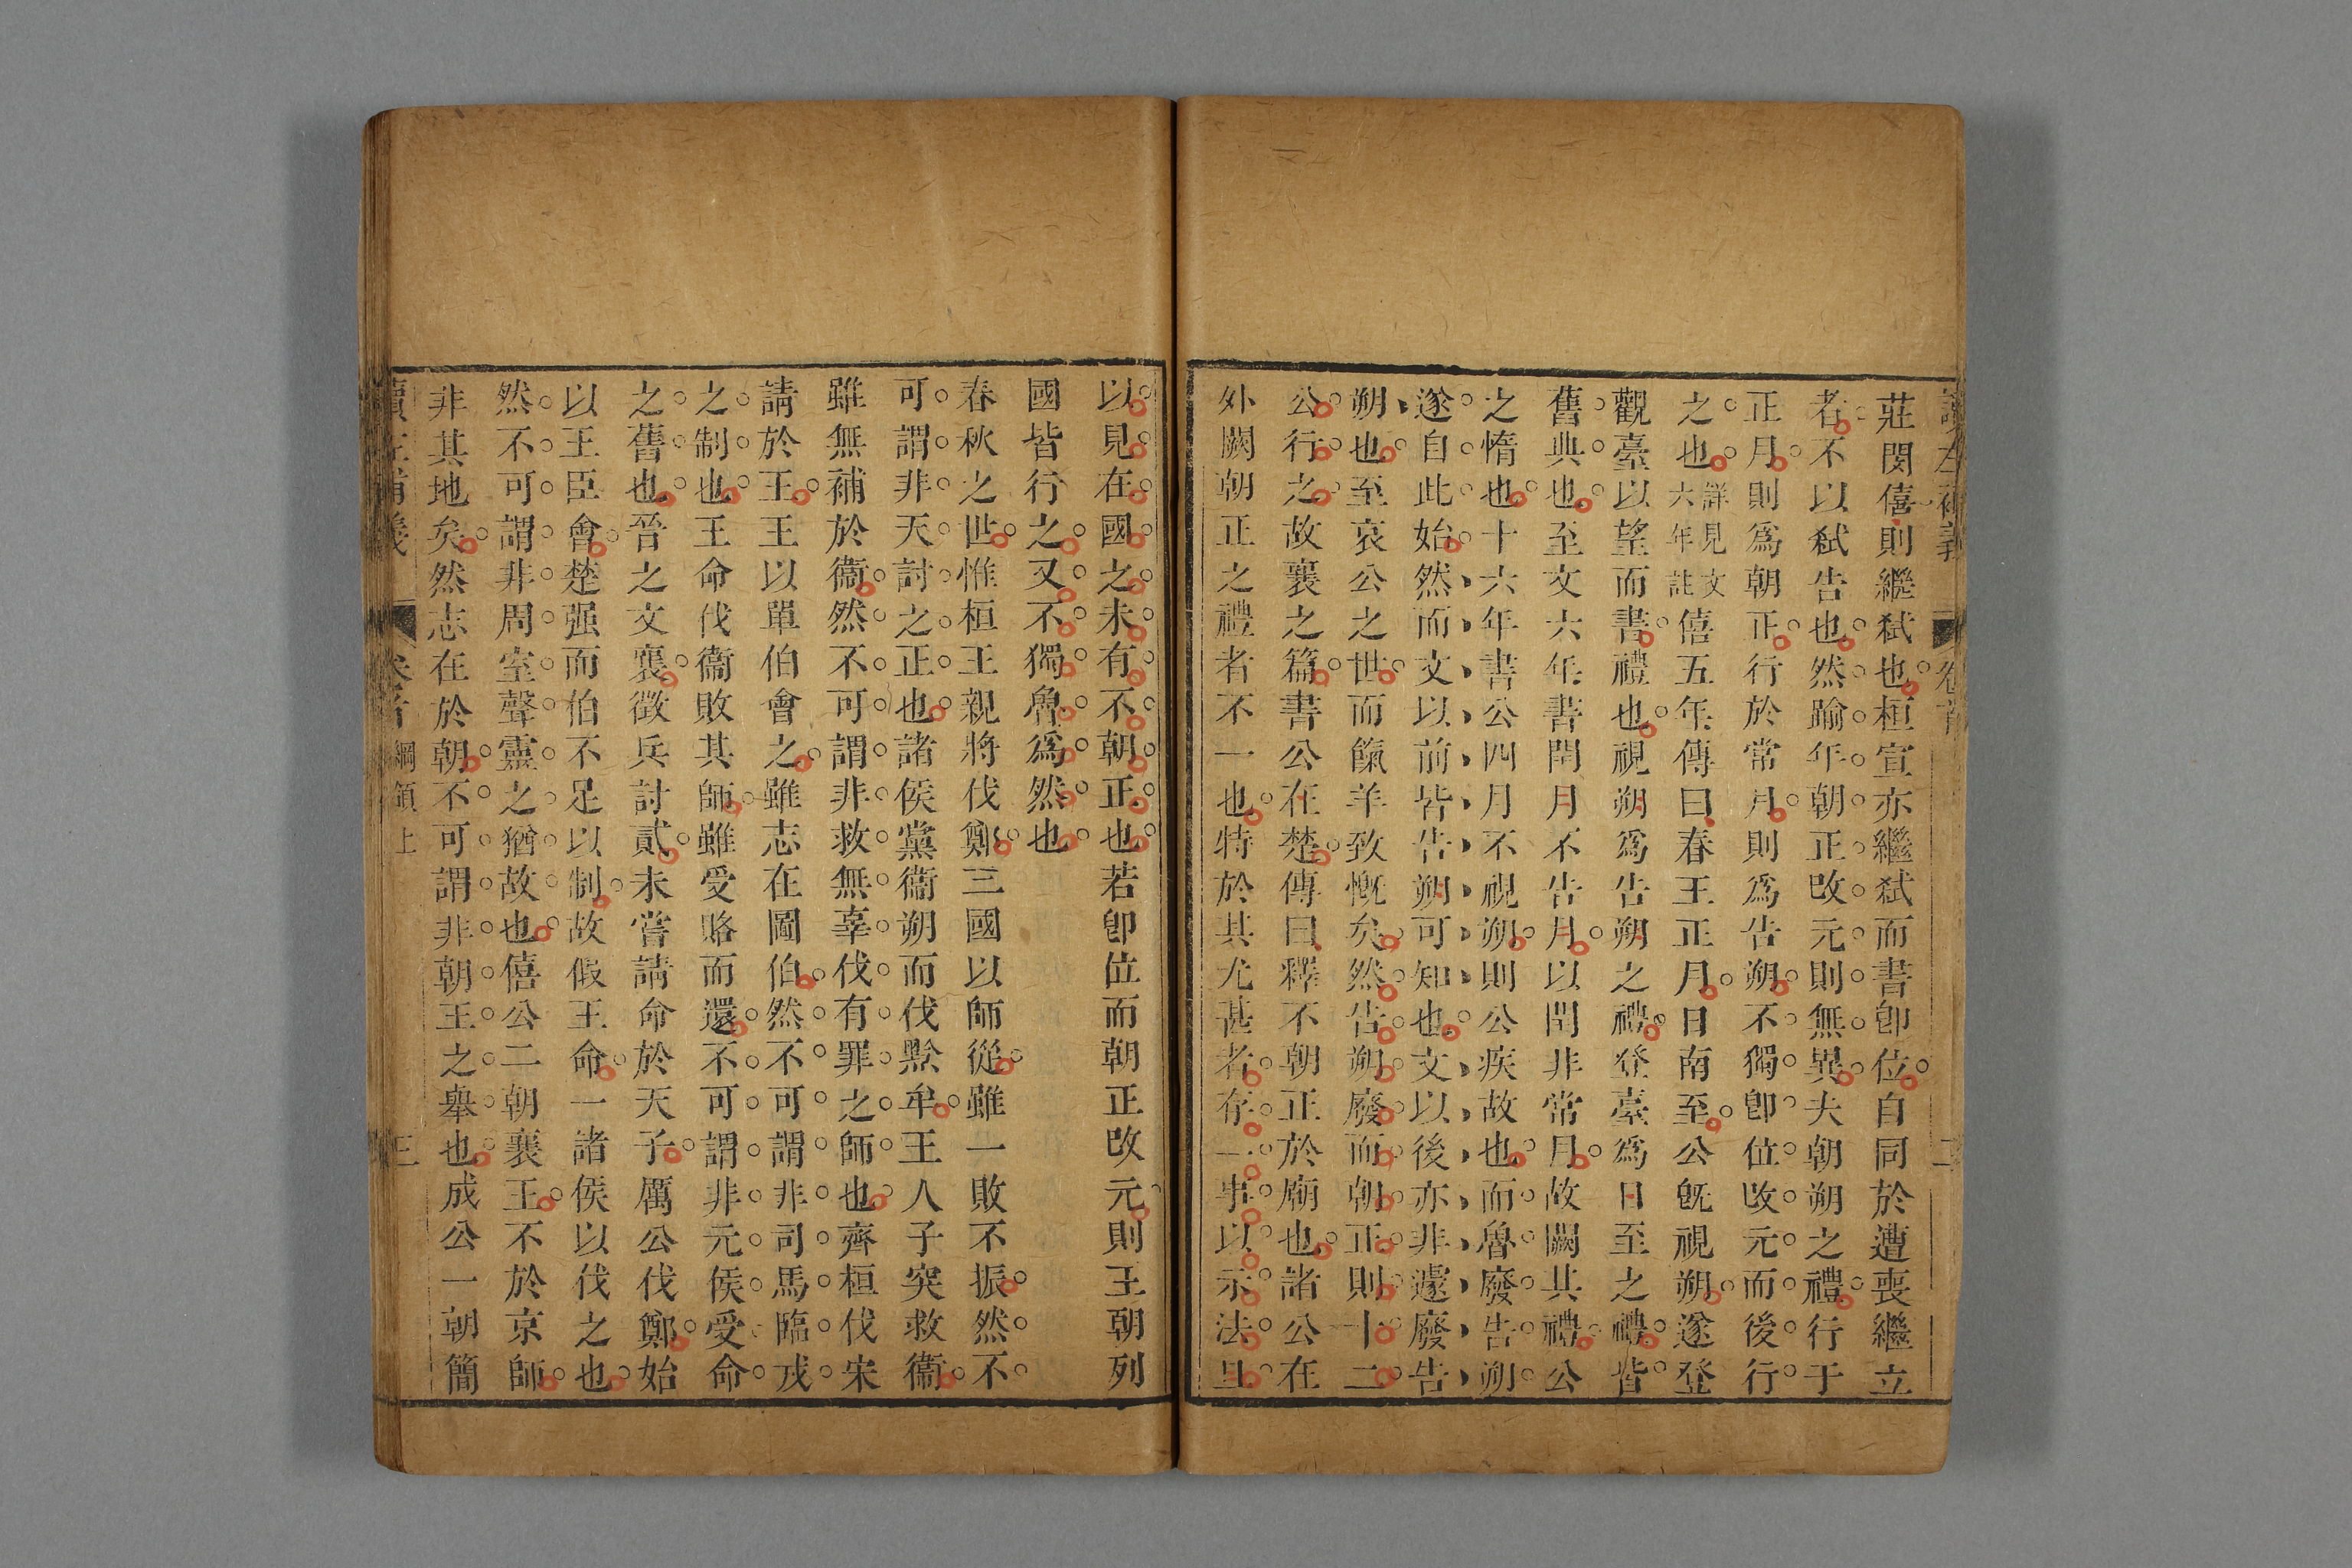 讀左補義 卷首 二
莊閔僖則繼弑也桓宣亦繼弑而書卽位自同於遭喪繼立
者不以弑告也然踰年朝正改元則無異夫朝朔之禮行于
正月則爲朝正行於常月則爲告朔不獨卽位改元而後行
之也詳見文六年註僖五年傳曰春王正月日南至公旣視朔遂登
觀臺以望而書禮也視朔爲告朔之禮登臺爲日至之禮皆
舊典也至文六年書閏月不告月以閏非常月故闕其禮公
之惰也十六年書公四月不視朔則公疾故也而魯廢告朔
遂自此始然而文以前皆告朔可知也文以後亦非遽廢告
朔也至哀公之世而餼羊致慨矣然告朔廢而朝正則十二
公行之故襄之篇書公在楚傳曰釋不朝正於廟也諸公在
外闕朝正之禮者不一也特於其尤甚者存一事以示法且
以見在國之未有不朝正也若卽位而朝正改元則王朝列
國皆行之又不獨魯爲然也
春秋之世惟桓王親將伐鄭三國以師從雖一敗不振然不
可謂非天討之正也諸侯黨衞朔而伐黔牟王人子突救衞
雖無補於衞然不可謂非救無辜伐有罪之師也齊桓伐宋
請於王王以單伯會之雖志在圖伯然不可謂非司馬臨戎
之制也王命伐衞敗其師雖受賂而還不可謂非元侯受命
之舊也晉之文襄徵兵討貳未嘗請命於天子厲公伐鄭始
以王臣會楚强而伯不足以制故假王命一諸侯以伐之也
然不可謂非周室聲靈之猶故也僖公二朝襄王不於京師
非其地矣然志在於朝不可謂非朝王之舉也成公一朝簡
讀左補義 卷首 綱領上 三